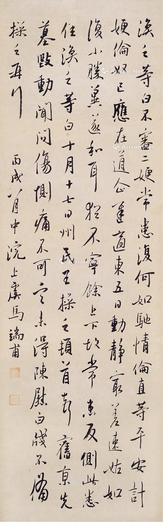 渙之等白不審二嫂常患復何如馳情倫直等平安計
嫂倫奴已應在道企遲東五日動靜寂差速姑如
復小勝冀遂和耳猶不寧餘上下均常患反側此悉
佳渙之等白十月十七日州民王操之頓首新舊哀先
墓毀動聞問傷惻痛不可言未得陳慰白牋不備
操之再行
丙戌八月中浣上虞馬瑞甫